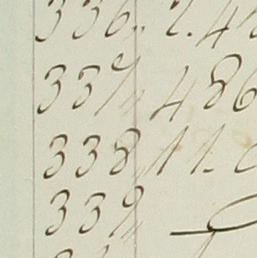 336 " 2.4
337 " 486
338 " 11.
339 "